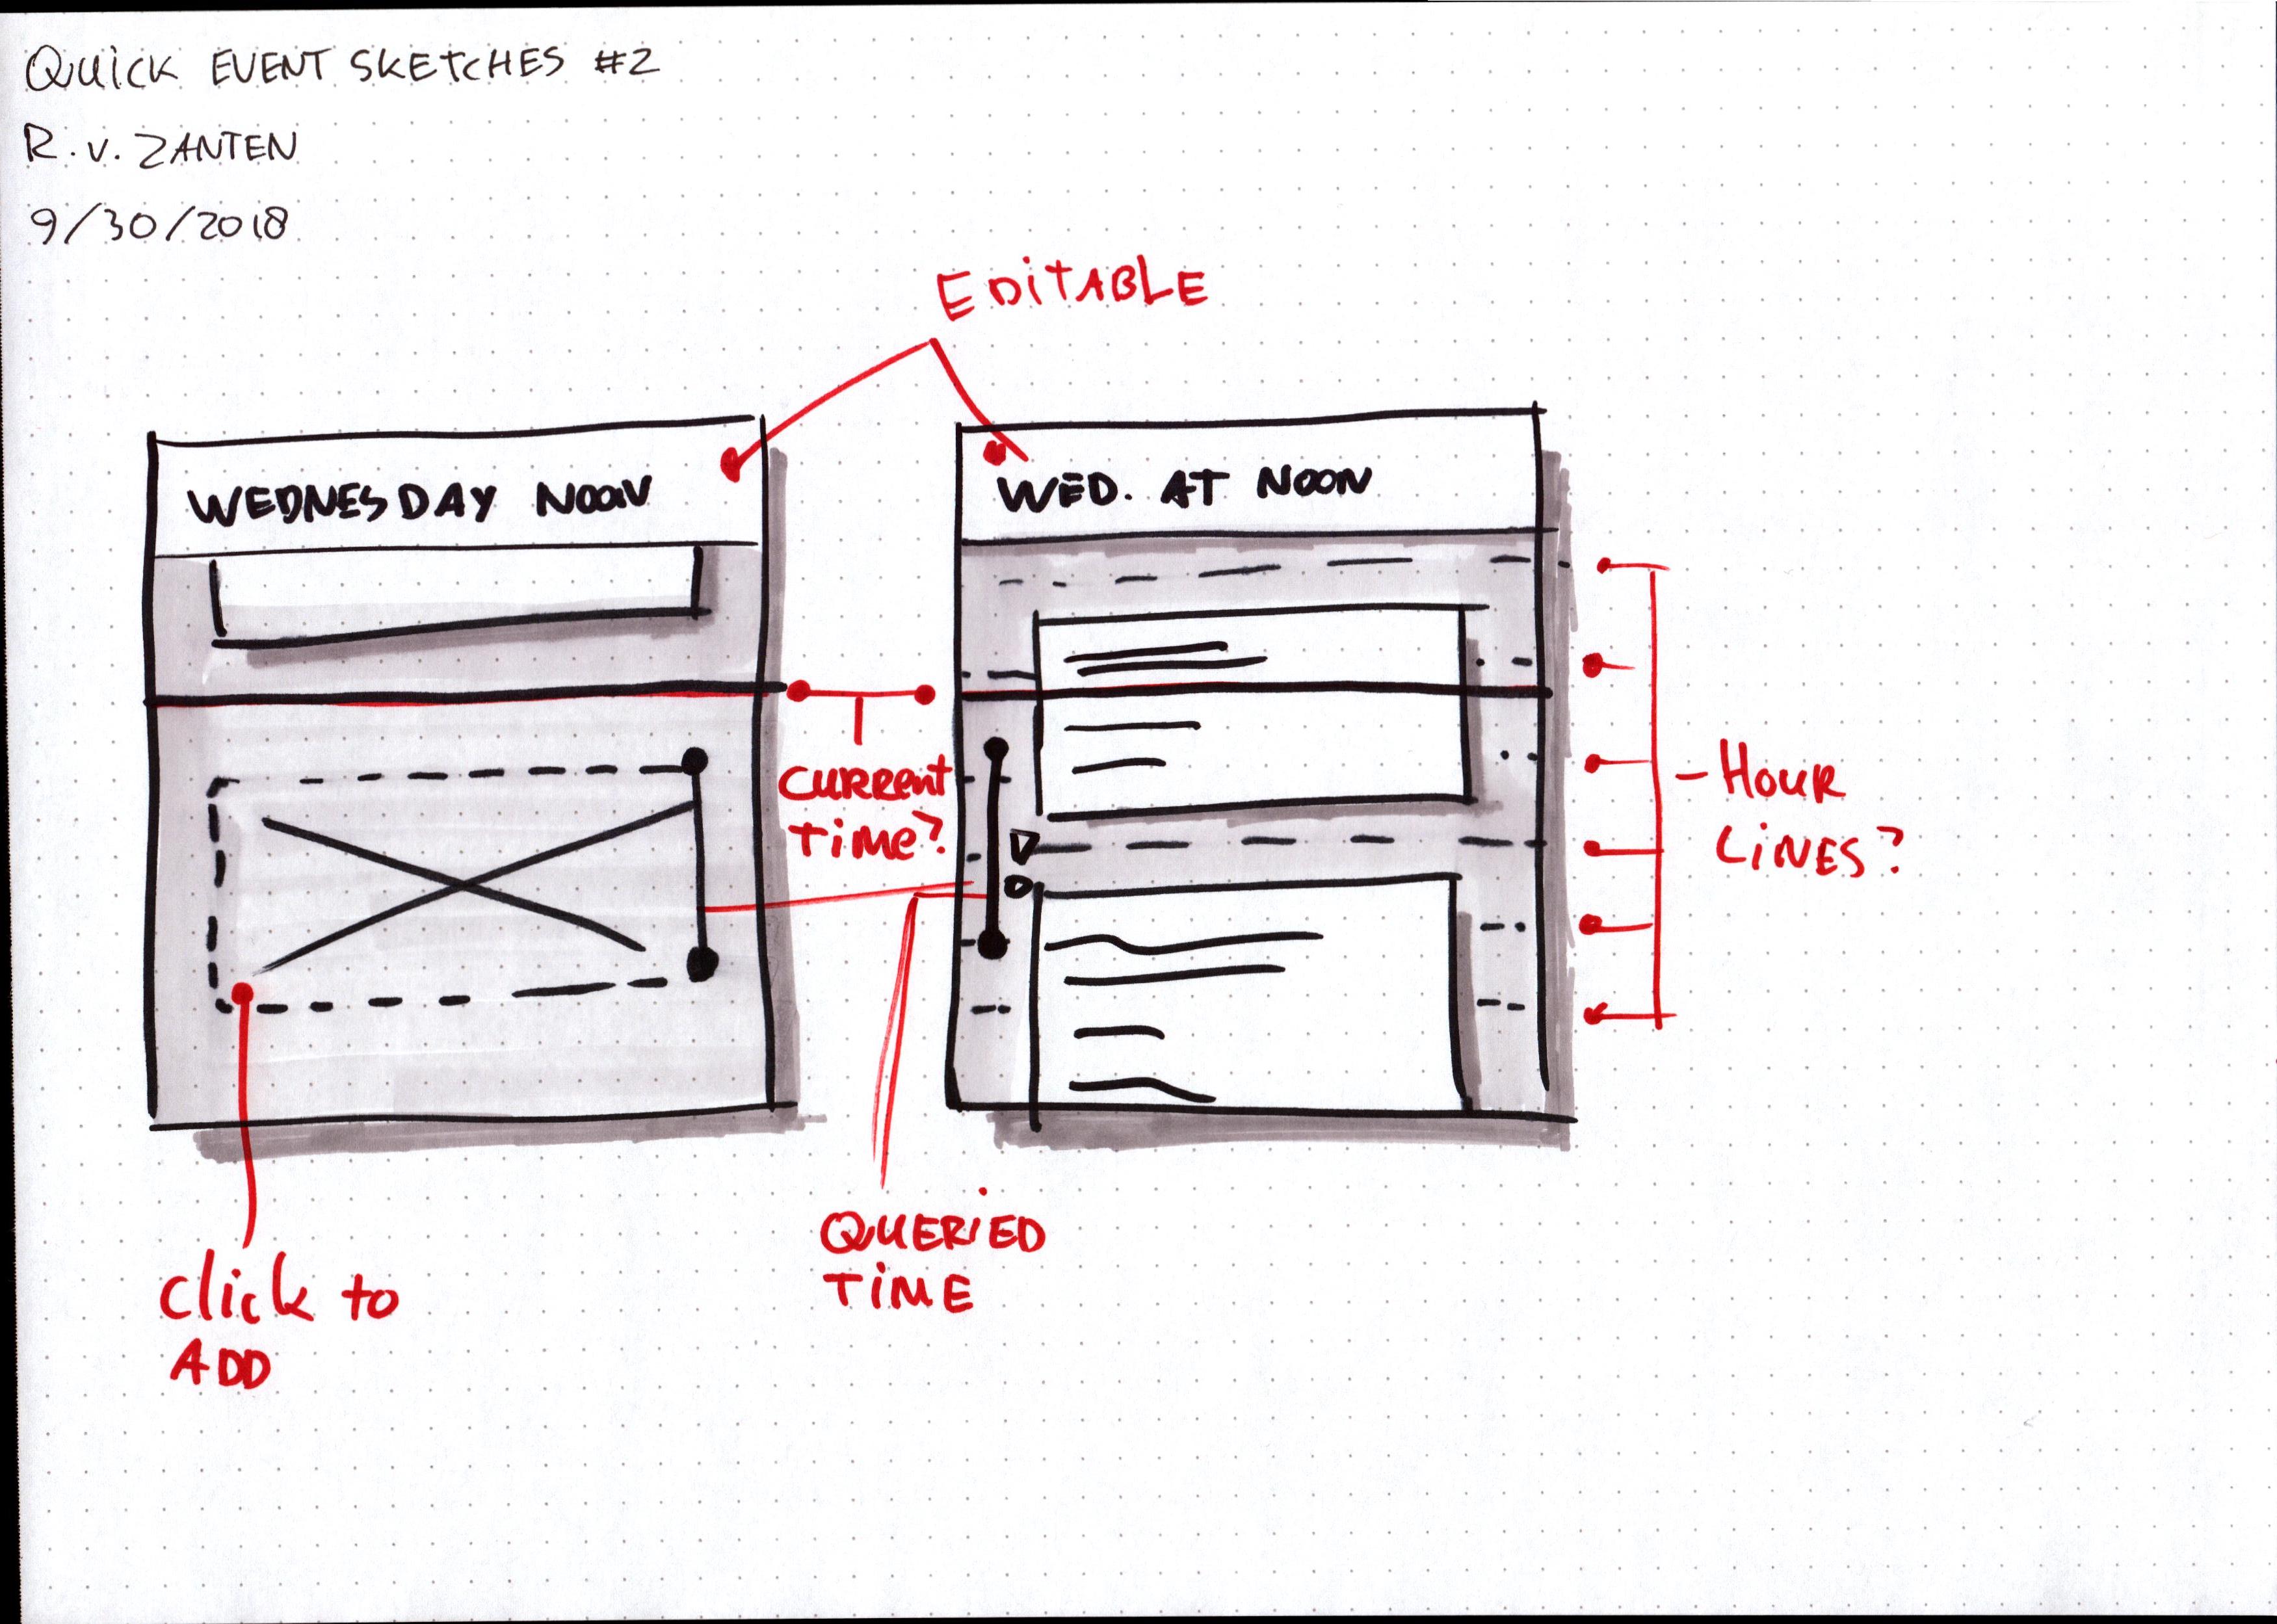 QUICK EVENT SKETCHES #2
R.V. ZANTEN
9/30/2018
EDITABLE
WEDNESDAY NOON
WED. AT NOON
CURRENT
TIME?
- HOUR
LINES?
QUERIED
TIME
click to
ADD